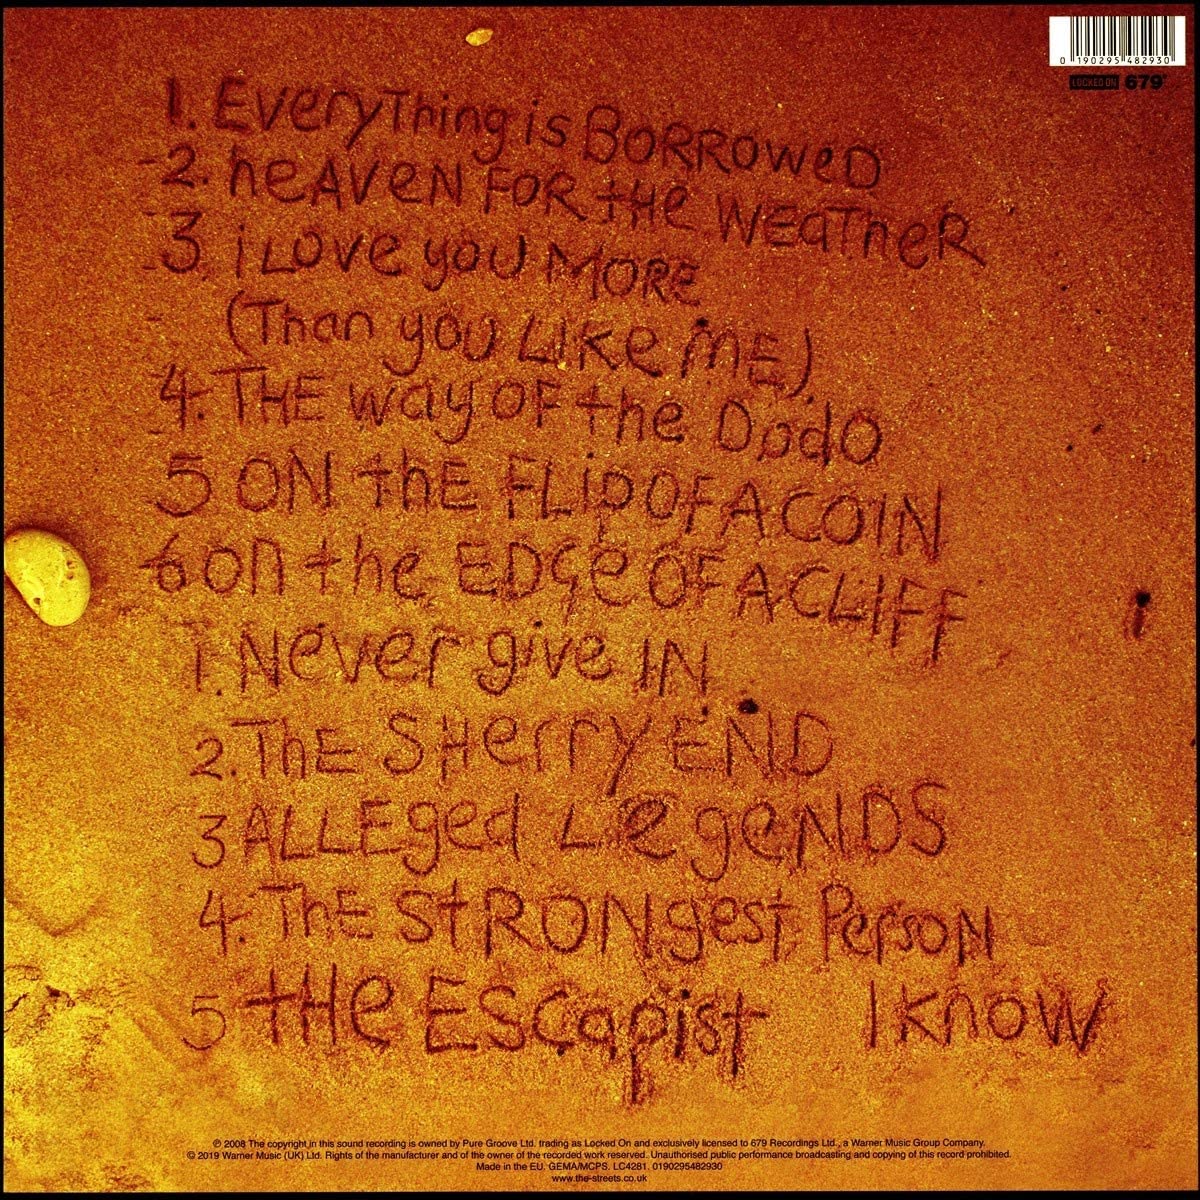 0 190295 482930
LOCKED ON 679
1. EVeryThing is BORROWeD
2. heAVeN FOR tHe WEaTheR
3. i LOVe yoU MORE
(Than you LIKe ME)
4. THE way OF the DodO
5 ON thE FLipOF A COIN
6 on the EDGe OF A CLIFF
1. Never give IN
2. ThE SHerry END
3 ALLEged LegeNDS
4. ThE StRONgest PersoN
I know
5 tHe EScapist
℗ 2008 The copyright in this sound recording is owned by Pure Groove Ltd. trading as Locked On and exclusively licensed to 679 Recordings Ltd., a Warner Music Group Company.
© 2019 Warner Music (UK) Ltd. Rights of the manufacturer and of the owner of the recorded work reserved. Unauthorised public performance broadcasting and copying of this record prohibited.
Made in the EU. GEMA/MCPS. LC4281. 0190295482930
www.the-streets.co.uk